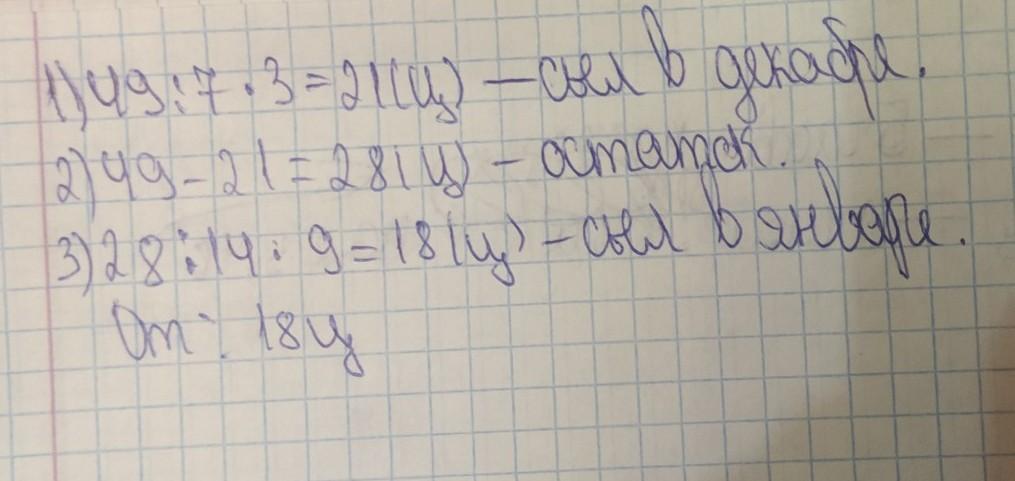 1) 49:7·3=21(ц) – съел в декабре.
2) 49-21=28(ц) – остаток.
3) 28:14·9=18(ц) – съел в январе.
От: 18ц